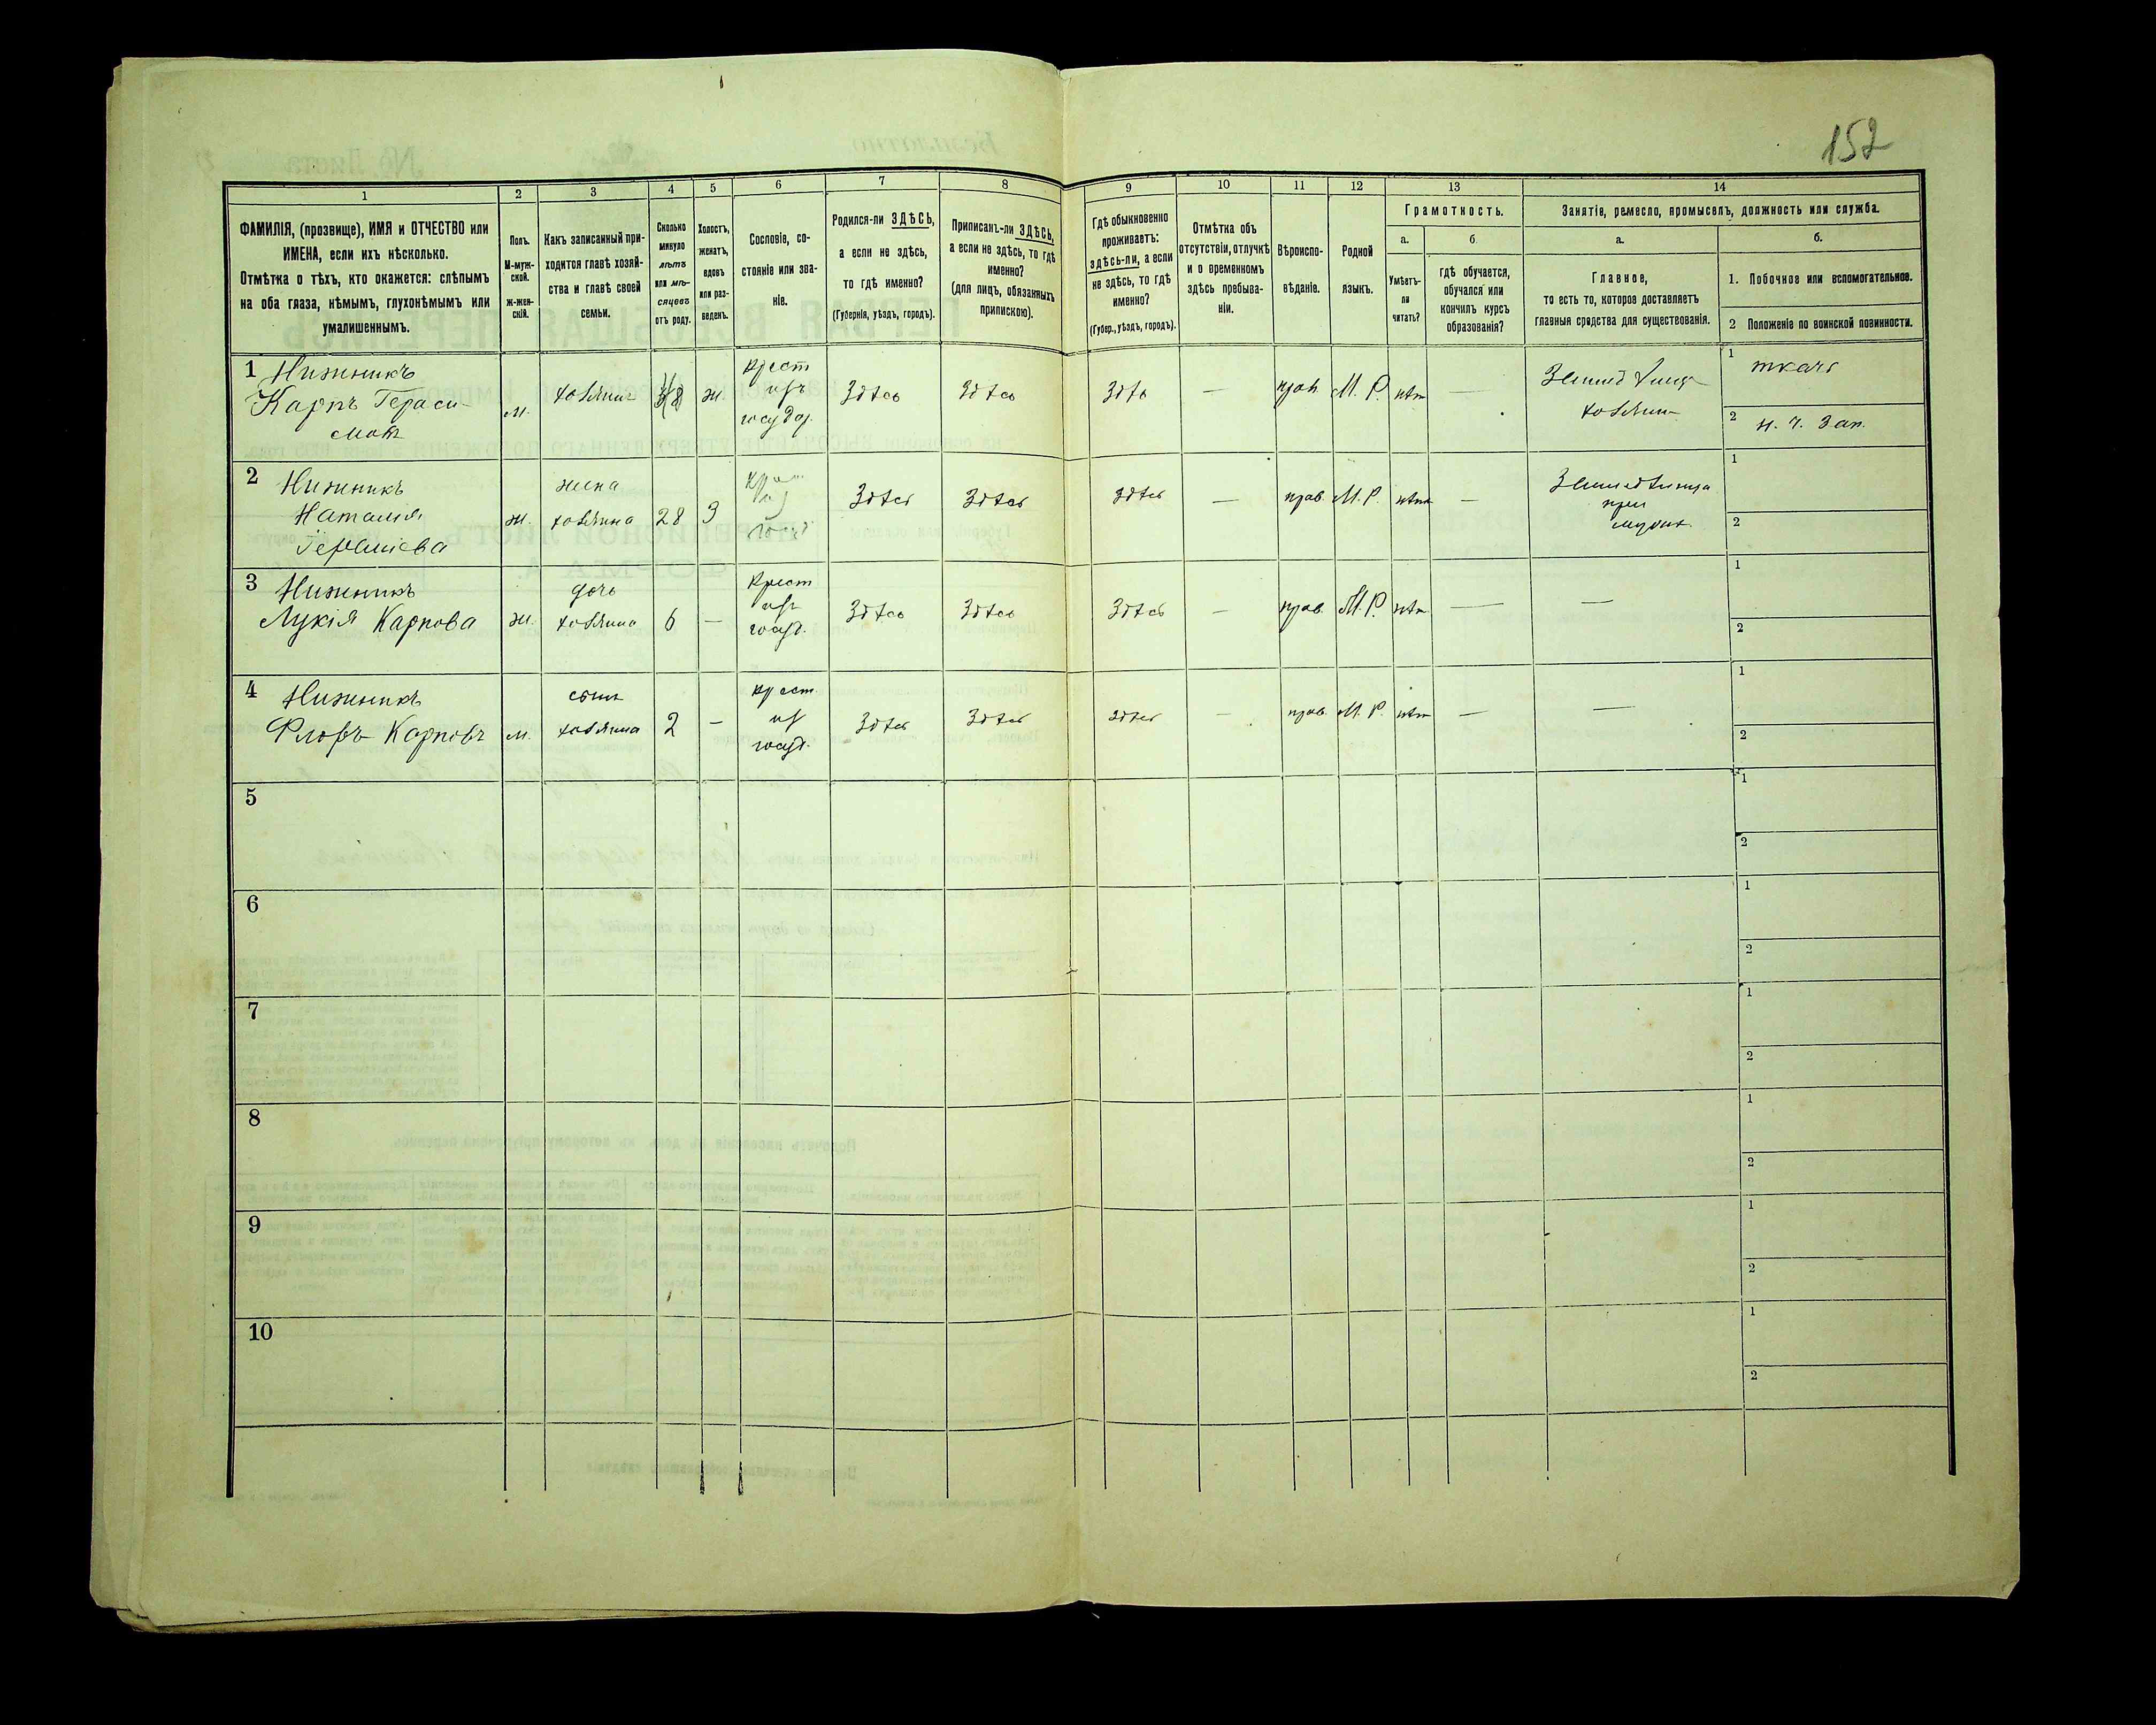 152
1 2 3 4 5 6 7 8 9 10 11 12 13 14
ФАМИЛІЯ, (прозвище), ИМЯ и ОТЧЕСТВО или
ИМЕНА, если ихъ нѣсколько.
Отмѣтка о тѣхъ, кто окажется: слѣпымъ
на оба глаза, нѣмымъ, глухонѣмымъ или
умалишеннымъ.
Полъ.
М-муж-
ской.
ж-жен-
скій.
Какъ записанный при-
ходится главѣ хозяй-
ства и главѣ своей
семьи.
Сколько
минуло
лѣтъ
или мѣ-
сяцевъ
отъ роду.
Холостъ,
женатъ,
вдовъ
или раз-
веденъ.
Сословіе, со-
стояніе или зва-
ніе.
Родился-ли ЗДѢСЬ,
а если не здѣсь,
то гдѣ именно?
(Губернія, уѣздъ, городъ).
Приписанъ-ли ЗДѢСЬ,
а если не здѣсь, то гдѣ
именно?
(для лицъ, обязанныхъ
припискою).
Гдѣ обыкновенно
проживаетъ:
здѣсь-ли, а если
не здѣсь, то гдѣ
именно?
(Губер., уѣздъ, городъ).
Отмѣтка объ
отсутствіи, отлучкѣ
и о временномъ
здѣсь пребыва-
ніи.
Вѣроиспо-
вѣданіе.
Родной
языкъ.
Грамотность.
а.
Умѣетъ-
ли
читать?
б.
гдѣ обучается,
обучался или
кончилъ курсъ
образованія?
Занятіе, ремесло, промыселъ, должность или служба.
а.
Главное,
то есть то, которое доставляетъ
главныя средства для существованія.
б.
1. Побочное или вспомогательное.
2 Положеніе по воинской повинности.
1 Нижникъ
Карпъ Гераси-
мовъ
м.
хозяинъ
ж.
крест
изъ
государ.
Здѣсь
Здѣсь
Здѣсь
—
прав.
М. Р.
нѣт
—
хозяин
1 ткачъ
2 н. ч. зап.
2 Нижникъ
Наталия
ж.
жена
хозяина
28
З
Здѣсь
Здѣсь
здѣсь
—
прав.
М. Р.
нѣт
—
при
мужѣ.
1
2
3 Нижникъ
Лукія Карпова
ж.
дочь
хозяина
6
—
Крест
изъ
госуд.
Здѣсь
Здѣсь
Здѣсь
—
прав.
М. Р.
нѣт
—
—
1
2
4 Нижникъ
Флоръ Карповъ
м.
сынъ
хозяина
2
—
крест.
из
госуд.
Здѣсь
Здѣсь
здѣсь
—
прав.
М. Р.
нѣт
—
—
1
2
5
1
2
6
1
2
7
1
2
8
1
2
9
1
2
10
1
2